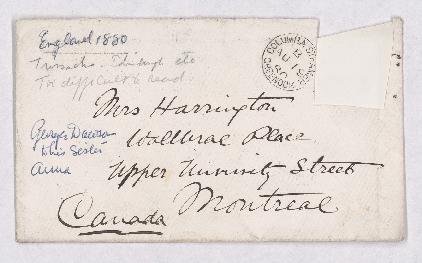 England 1880
Trossachs. Edinburgh etc
Too difficult to read.
COLUMBIA
B
AU
80
Mrs Harrington
Wallbrae Place
Upper University Street
Montreal
Canada
George Dawson
to his Sister
Anna